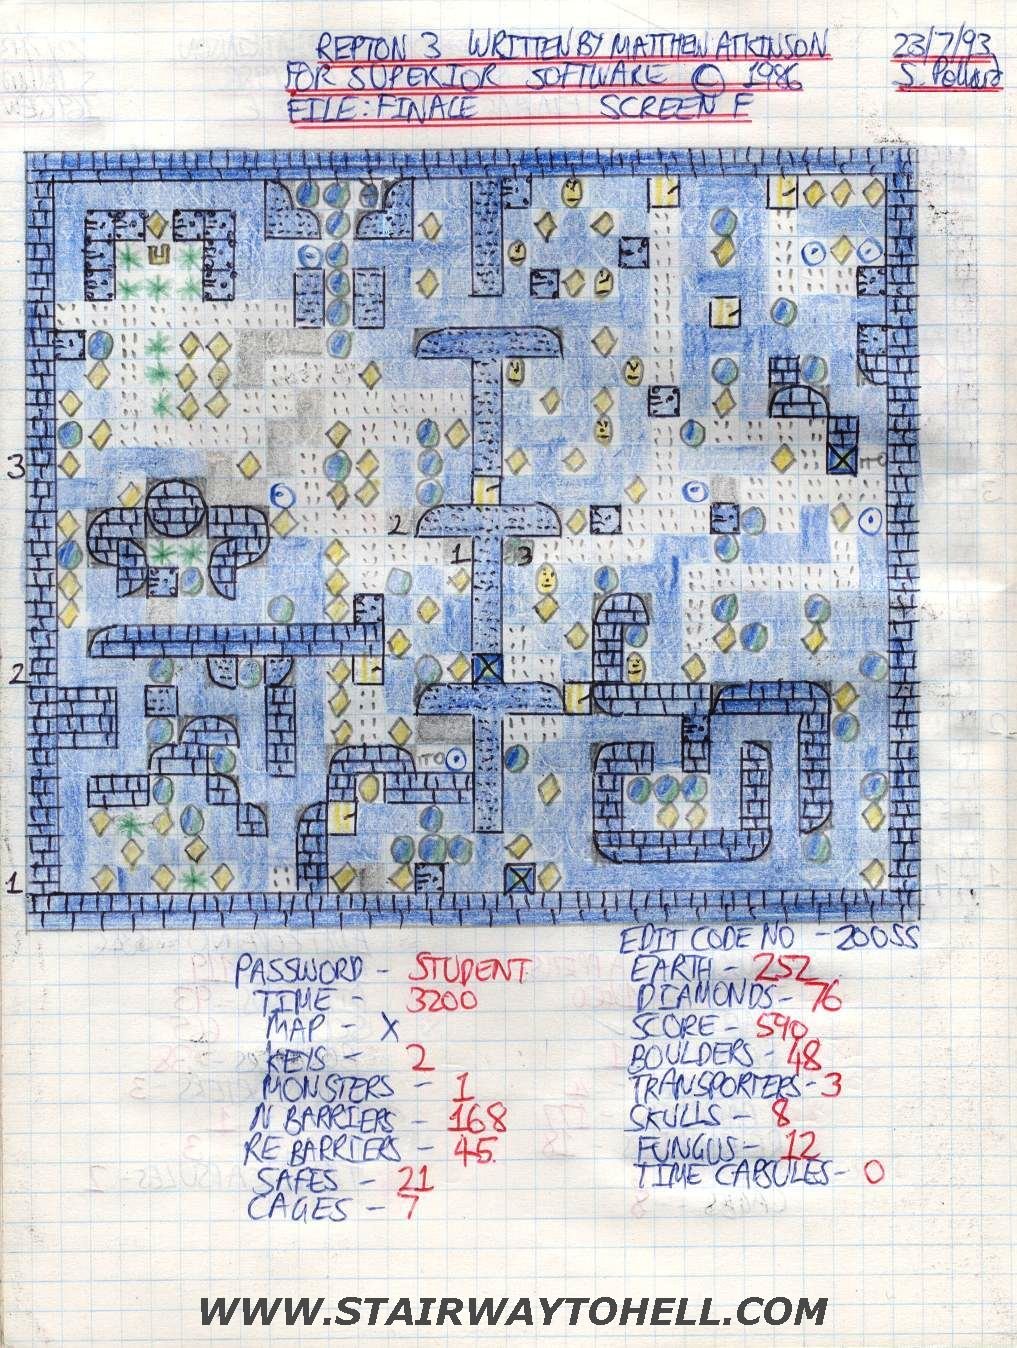 REPTON 3 WRITTEN BY MATTHEW ATKINSON
23/7/93
FOR SUPERIOR SOFTWARE © 1986
S. Pollard
FILE: FINALE SCREEN F
3
2
1 3
2
1
EDIT CODE NO - 20055
PASSWORD - STUDENT
TIME - 3200
MAP - X
KEYS - 2
MONSTERS - 1
N BARRIERS - 168
RE BARRIERS - 45
SAFES - 21
CAGES - 7
EARTH - 252
DIAMONDS - 76
SCORE - 590
BOULDERS - 48
TRANSPORTERS - 3
SKULLS - 8
FUNGUS - 12
TIME CAPSULES - 0
WWW.STAIRWAYTOHELL.COM